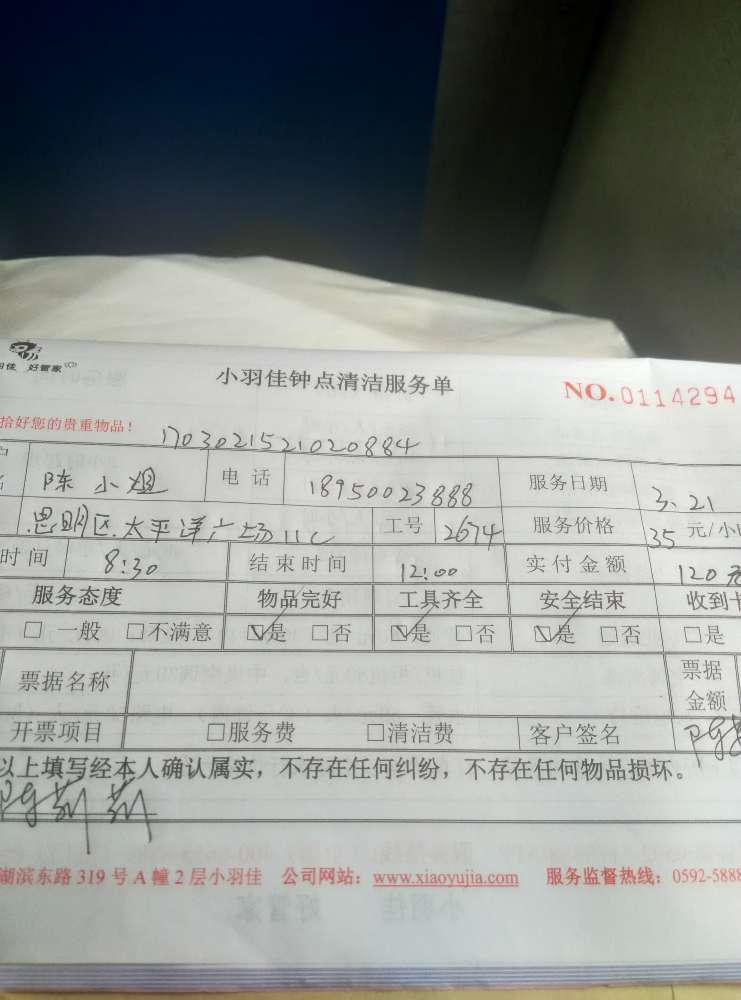 好管家
小羽佳钟点清洁服务单 NO.0114294
拾好您的贵重物品!
1703021521020884
陈小姐 电话 18950023888 服务日期 3.21
思明区.太平洋广场11C 工号 2674 服务价格 35 元/小
时间 8:30 结束时间 12:00 实付金额 120元
服务态度 物品完好 工具齐全 安全结束 收到
□ 一般 □不满意 ☑是 □否 ☑是 □否 ☑是 □否 □是
票据名称 票据金额
开票项目 □服务费 □清洁费 客户签名 陈
以上填写经本人确认属实，不存在任何纠纷，不存在任何物品损坏。
陈莉莉
湖滨东路319号A幢2层小羽佳 公司网站：www.xiaoyujia.com 服务监督热线：0592-5888